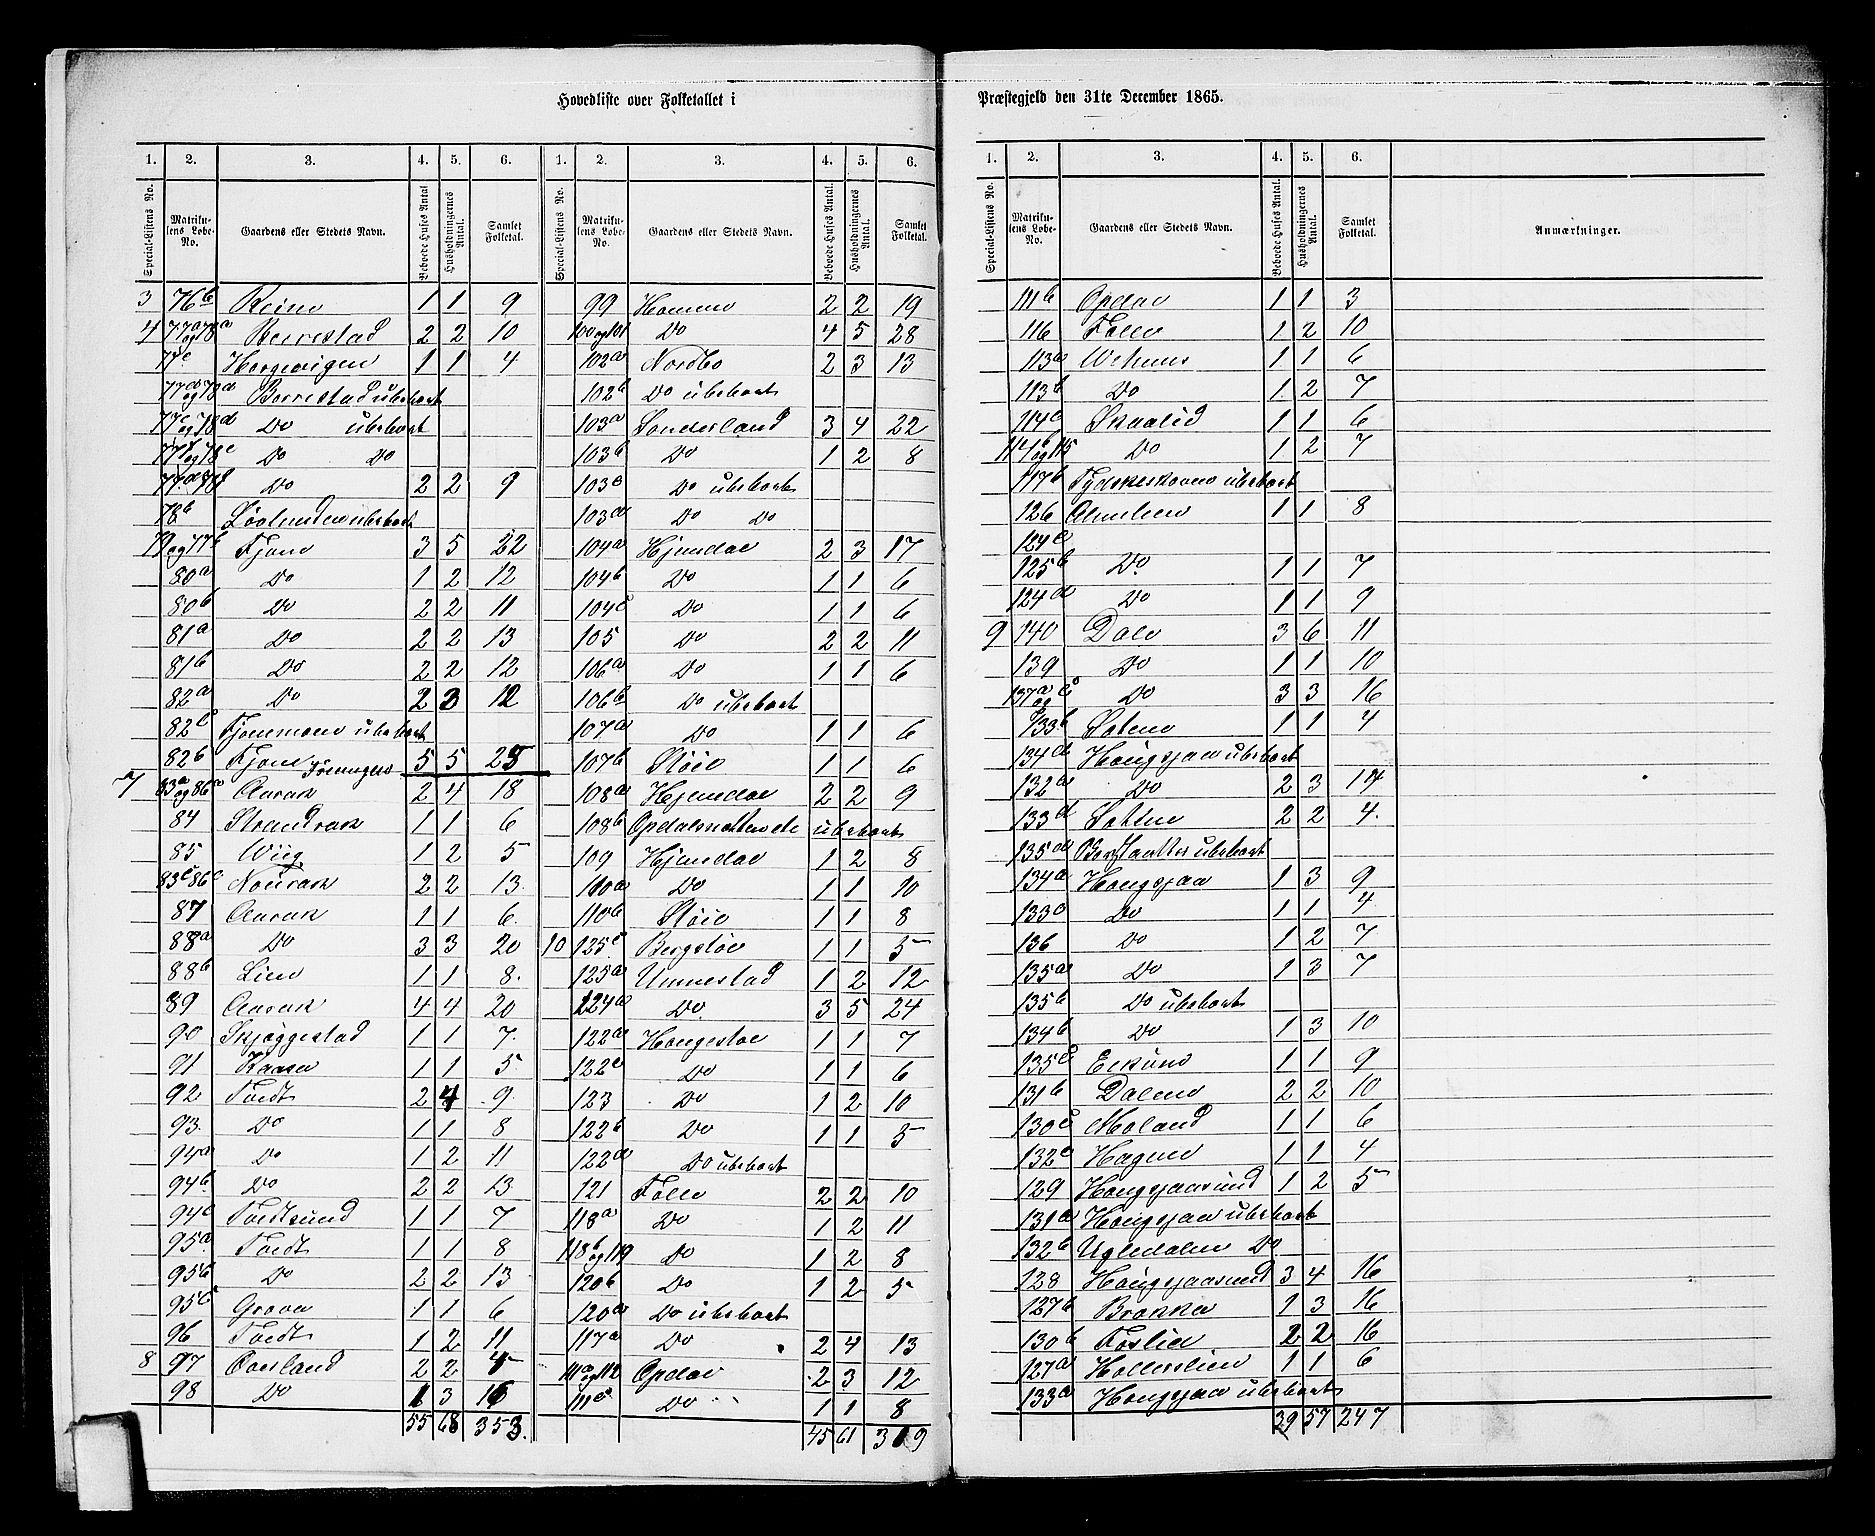 Hovedliste over Folketallet i
1. 2. 3. 4. 5. 6.
Special-Listens No. Matrikulens Løbe-No. Gaardens eller Stedets Navn. Beboede Huses Antal Husholdningernes Antal. Samlet Folketal.
3 76b Reine 1 1 9
4 77a og 78a Borrestad 2 2 10
77c 1 1 4
Borrestad ubeboet
Do ubeboet
Do Do
Do 2 2 9
78b ubeboet
79 og 77b Fjone 3 5 22
80a Do 1 2 12
80b Do 2 2 11
81a Do 2 2 13
81b Do 2 2 12
82a Do 2 3 12
82c Fjonemoen ubeboet
82b Fjone 5 5 25
7 83a og 86a Aarak 2 4 18
84 Strandrak 1 1 6
85 Wiig 1 2 5
83c 86c Nourak 2 2 13.
87 Aarak 1 1 6.
88a Do 3 3 20
88b Lien 1 1 8.
89 Aarak 4 4 20
90 Skjeggestad 1 1 7.
91 Kaasa 1 1 5
92 Tvedt 2 4 9
93 Do 1 1 8
94a Do 1 2 11
94b Do 2 2 13
94c Tvedtsund 1 1 7
95a Tvedt 1 1 8
95b Do 2 2 13
95c Grova 1 1 6
96 Tvedt 1 2 11
8 97 Overland 2 2 4
98 Do 1 3 16
55 68 353.
1. 2. 3. 4. 5. 6.
Special-Listens No. Matrikulens Løbe-No. Gaardens eller Stedets Navn. Beboede Huses Antal. Husholdningernes Antal. Samlet Folketal.
99 Homme 2 2 19
100 og 101 Do 4 5 28
102a Nordbo 2 3 13
102b Do ubeboet
103a Sonderland 3 4 22
103b Do 1 2 8
103c Do ubeboet
103d Do Do
104a Hjemdal 2 3 17
104b Do 1 1 6
104c Do 1 1 6
105 Do 2 2 11
106a Do 1 1 6
106b Do ubeboet
107a Do 1 1 6
107b Støie 1 1 6
108a Hjemdal 2 2 9
108b ubeboet
109 Hjemdal 1 2 8
110a Do 1 1 10
110b Støie 1 1 8
10 125c Bergstøe 1 1 5
125a Unnestad 1 2 12
124a Do 3 5 24
122a Haugestøe 1 1 7
122c Do 1 1 6
123 Do 1 2 10
122b Do 1 1 5
122d Do ubeboet
121 Tølle 2 2 10
118a Do 1 2 11
118b og 119 Do 1 2 8
120b Do 1 2 5
120a Do ubeboet
117a Do 2 4 13
111a og 112 Opdal 2 3 12
111c Do 1 1 8
45 61 319
Præstegjeld den 31te December 1865.
1. 2. 3. 4. 5. 6.
Special-Listens No. Matrikulens Løbe-No. Gaardens eller Stedets Navn. Beboede Huses Antal. Husholdningernes Antal. Samlet Folketal. Anmærkninger.
111b Opdal 1 1 3
116 Tølle 1 2 10
113a Wehuus 1 1 6
113b Do 1 2 7
114c Skaalid 1 1 6
Do 1 2 7
117b ubeboet
126 Almelien 1 1 8
124c
125b Do 1 1 7
124d Do 1 1 9
9 140 Dale 3 6 11
139 Do 1 1 10
137a og c Do 3 3 16
133b 1 1 4
134d Haugsjaa ubeboet
132a Do 2 3 14
133d 2 2 4.
135d ubeboet
134a Haugsjaa 1 3 9
133c Do 1 1 4
136 Do 1 2 7
135a Do 1 3 7
135b Do ubeboet
134b Do 1 3 10
135c Eiksund 1 1 9
131b Dalene 2 2 10
130c Moland 1 1 6
132c Hagene 1 1 4
129 Haugsjaasund 1 2 5
131a Haugsjaa ubeboet
132b Ugledalen Do
128 Haugsjaasund 3 4 16
127b Brokka 1 3 16
130b Foslid 2 2 16
127a 1 1 6
133a Haugsjaa ubeboet
39 57 247